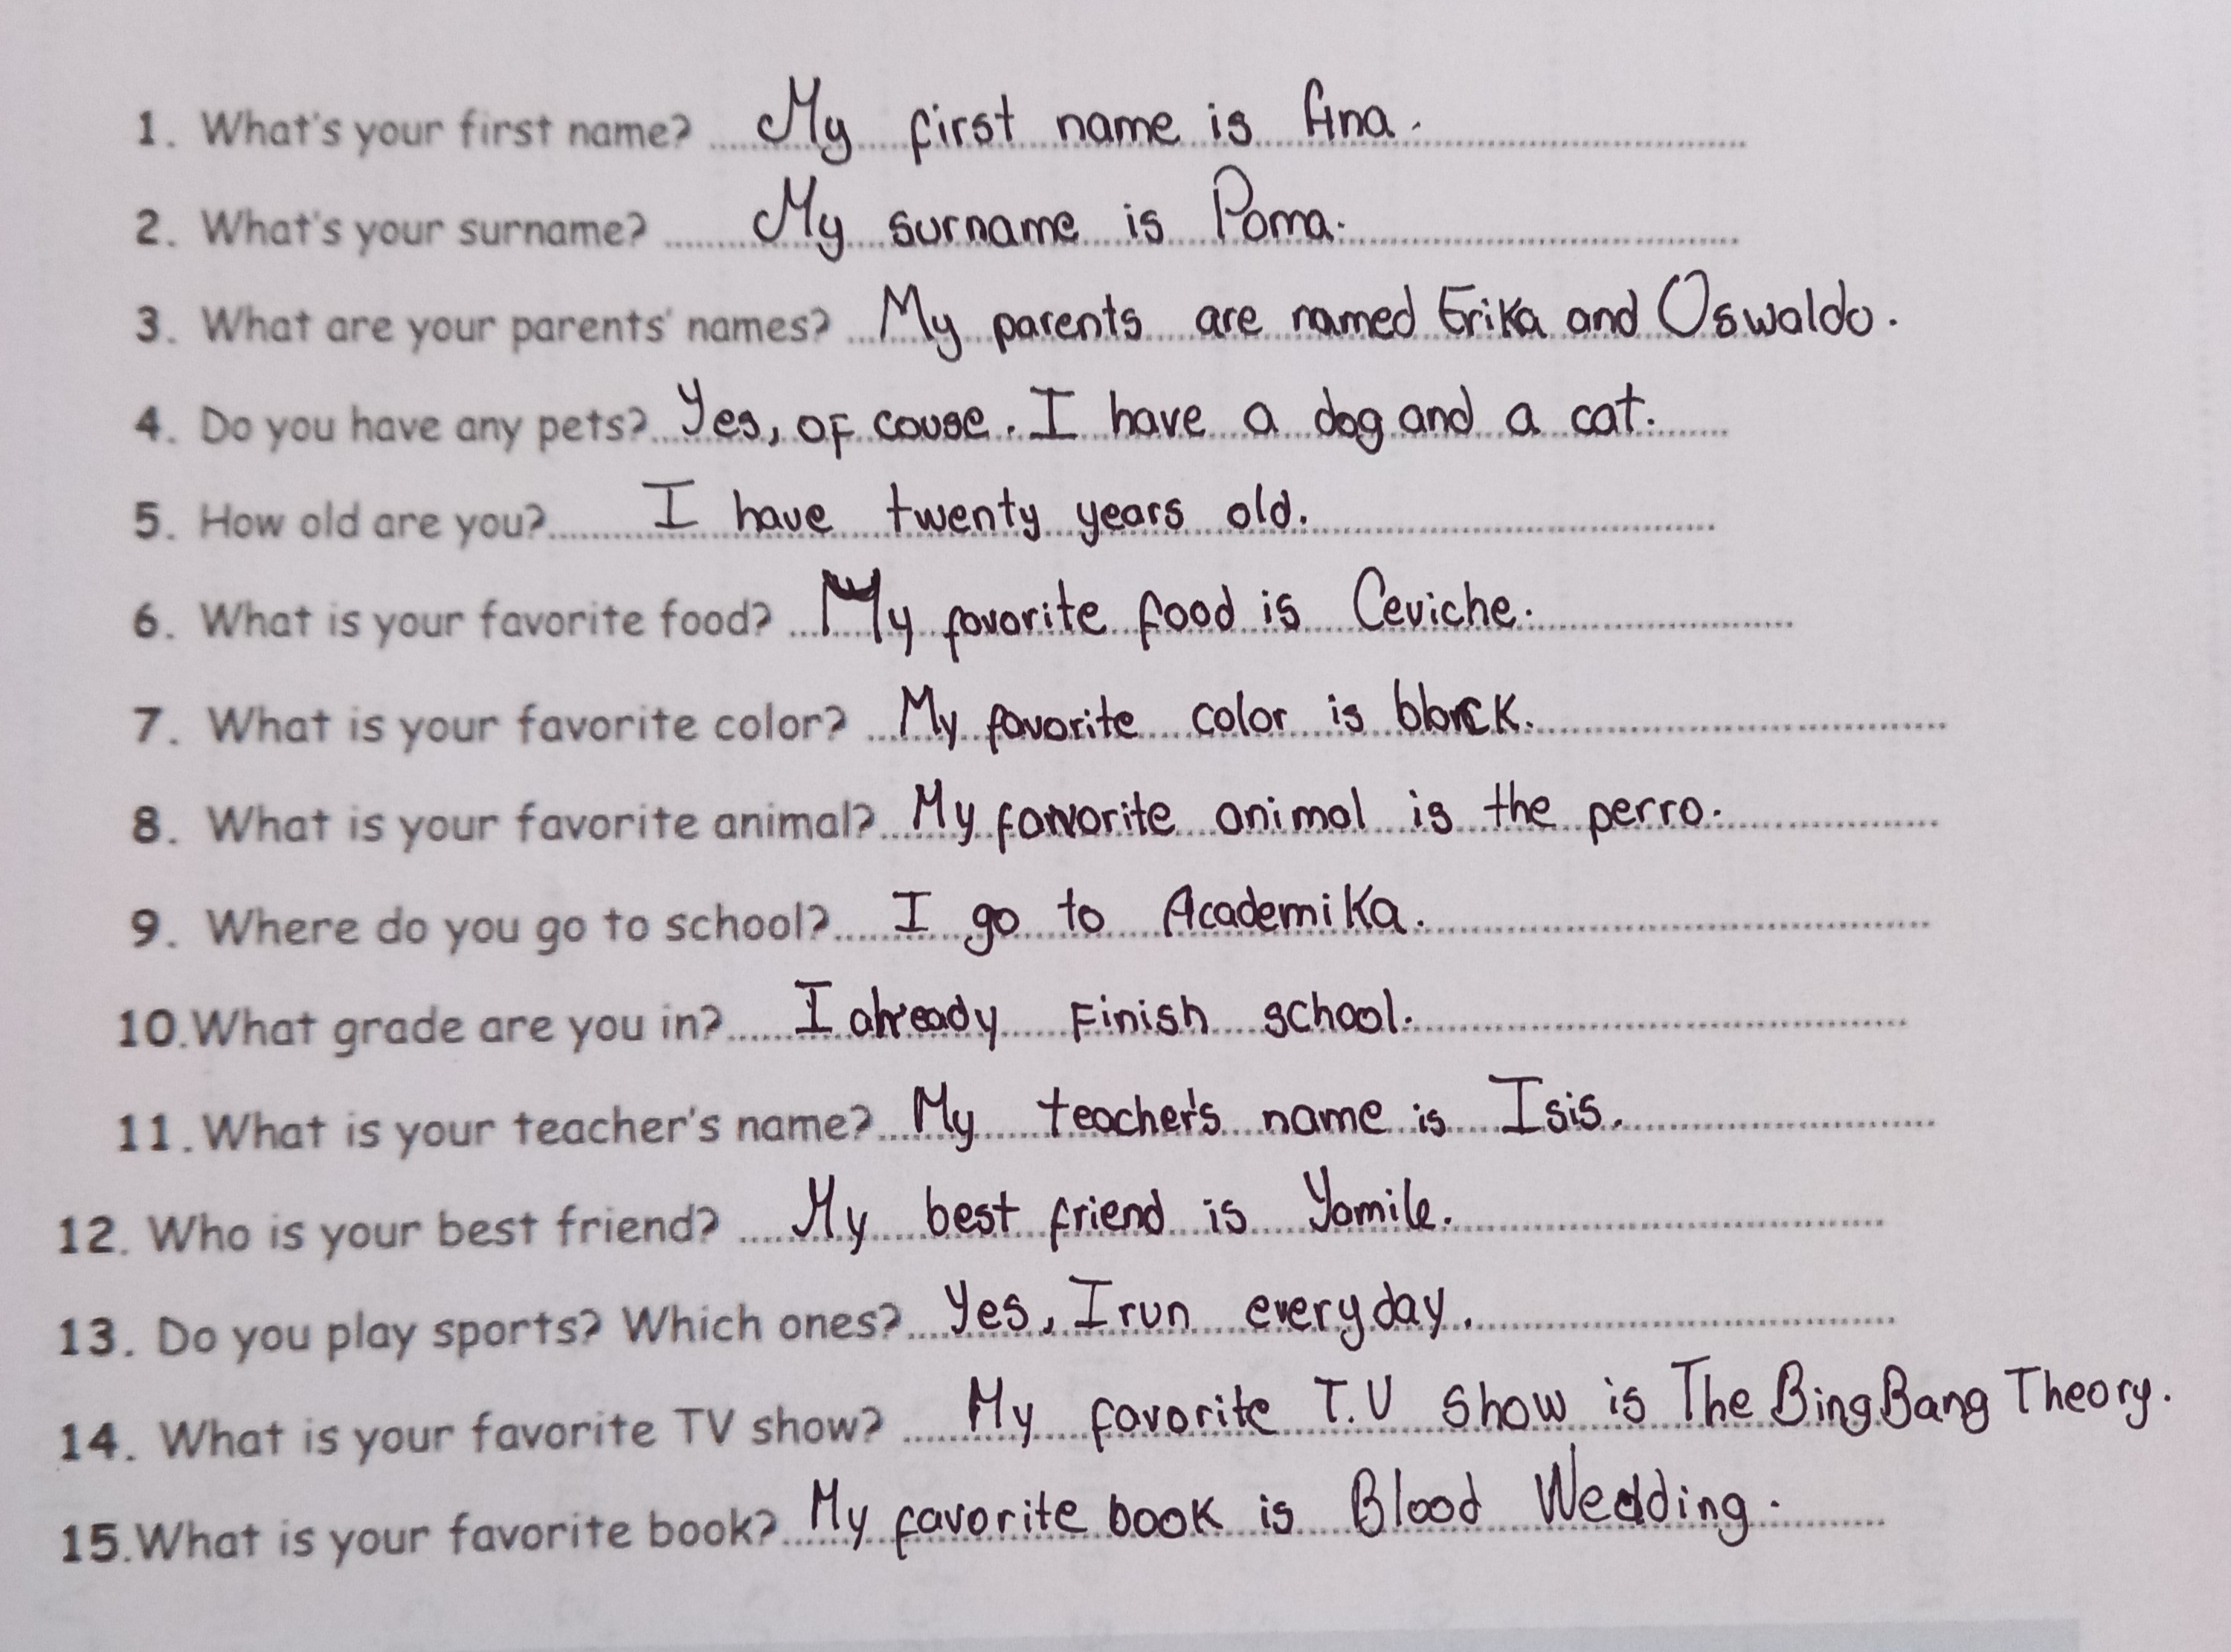 1. What's your first name? My first name is Ana.
2. What's your surname? My surname is Poma.
3. What are your parents' names? My parents are named Erika and Oswaldo.
4. Do you have any pets? Yes, of couse. I have a dog and a cat.
5. How old are you? I have twenty years old.
6. What is your favorite food? My favorite food is Ceviche.
7. What is your favorite color? My favorite color is black.
8. What is your favorite animal? My favorite animal is the perro.
9. Where do you go to school? I go to AcademiKa.
10. What grade are you in? I already Finish school.
11. What is your teacher's name? My teacher's name is Isis.
12. Who is your best friend? My best friend is Yamile.
13. Do you play sports? Which ones? Yes, I run every day.
14. What is your favorite TV show? My favorite T.V show is The Bing Bang Theory.
15. What is your favorite book? My favorite book is Blood Wedding.